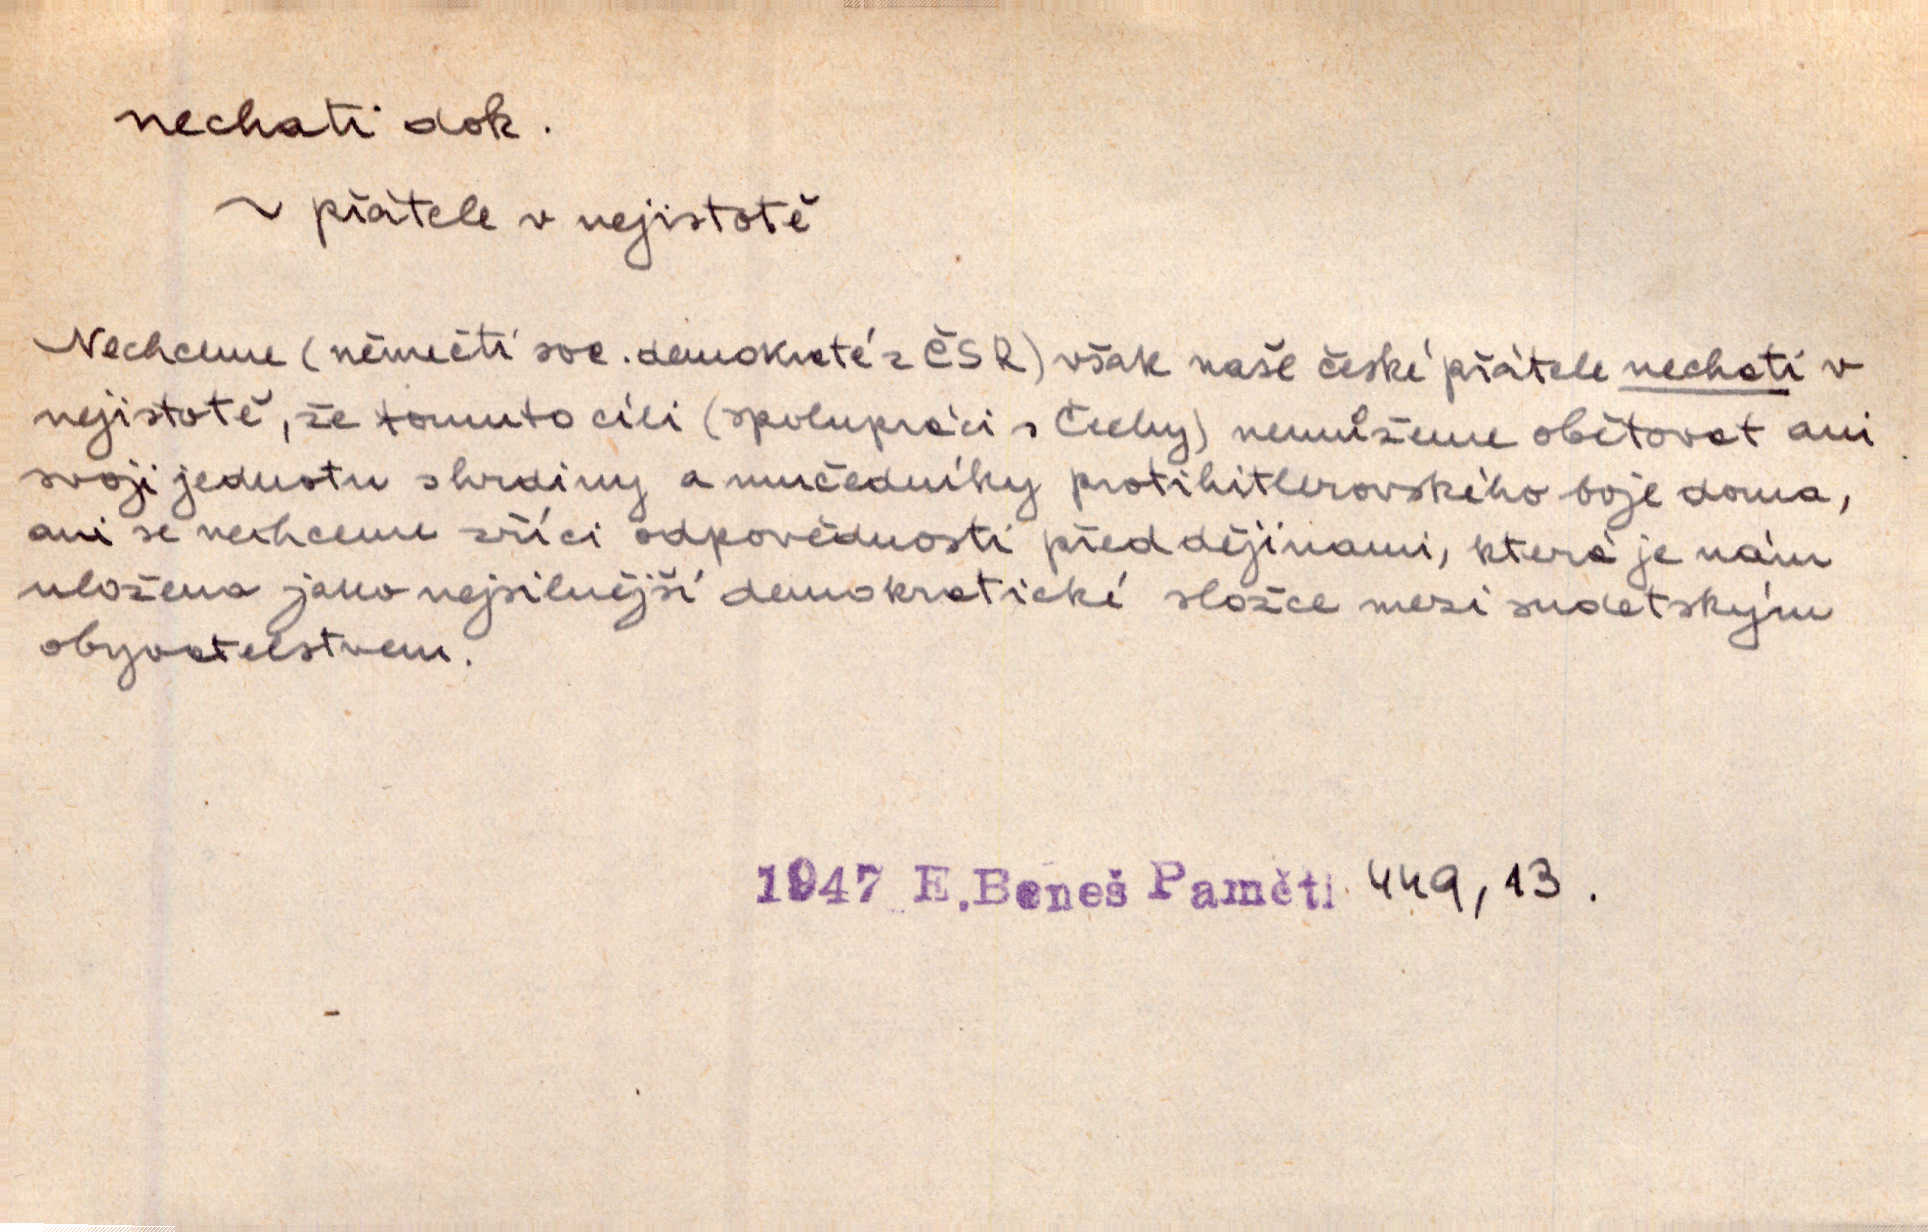 nechati dok.
~ přátele v nejistotě
Nechceme (němečtí soc. demokraté z ČSR) však naše české přátele nechati v
nejistotě, že tomuto cíli (spolupráci s Čechy) nemůžeme obětovat ani
svoji jednotu s hrdiny a mučedníky protihitlerovského boje doma,
ani se nechceme zříci odpovědnosti před dějinami, která je nám
uložena jako nejsilnější demokratické složce mezi sudetským
obyvatelstvem.
1947 E. Beneš Paměti 449, 13.